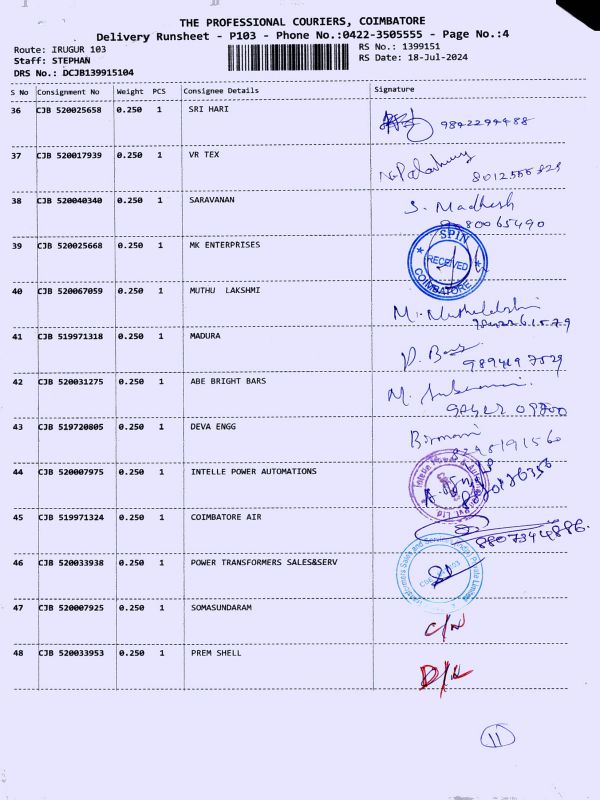 THE PROFESSIONAL COURIERS, COIMBATORE
Delivery Runsheet - P103 - Phone No.:0422-3505555 - Page No.:4
Route: IRUGUR 103 RS No.: 1399151
Staff: STEPHAN RS Date: 18-Jul-2024
DRS No.: DCJB139915104
S No Consignment No Weight PCS Consignee Details Signature
36 CJB 520025658 0.250 1 SRI HARI
9842294488
37 CJB 520017939 0.250 1 VR TEX
38 CJB 520040340 0.250 1 SARAVANAN
S. Madhesh
80065490
39 CJB 520025668 0.250 1 MK ENTERPRISES
SPIN
RECEIVED
COIMBATORE
40 CJB 520067059 0.250 1 MUTHU LAKSHMI
41 CJB 519971318 0.250 1 MADURA
42 CJB 520031275 0.250 1 ABE BRIGHT BARS
43 CJB 519720805 0.250 1 DEVA ENGG
44 CJB 520007975 0.250 1 INTELLE POWER AUTOMATIONS
45 CJB 519971324 0.250 1 COIMBATORE AIR
8807344886.
46 CJB 520033938 0.250 1 POWER TRANSFORMERS SALES&SERV
47 CJB 520007925 0.250 1 SOMASUNDARAM
C/N
48 CJB 520033953 0.250 1 PREM SHELL
D/L
11